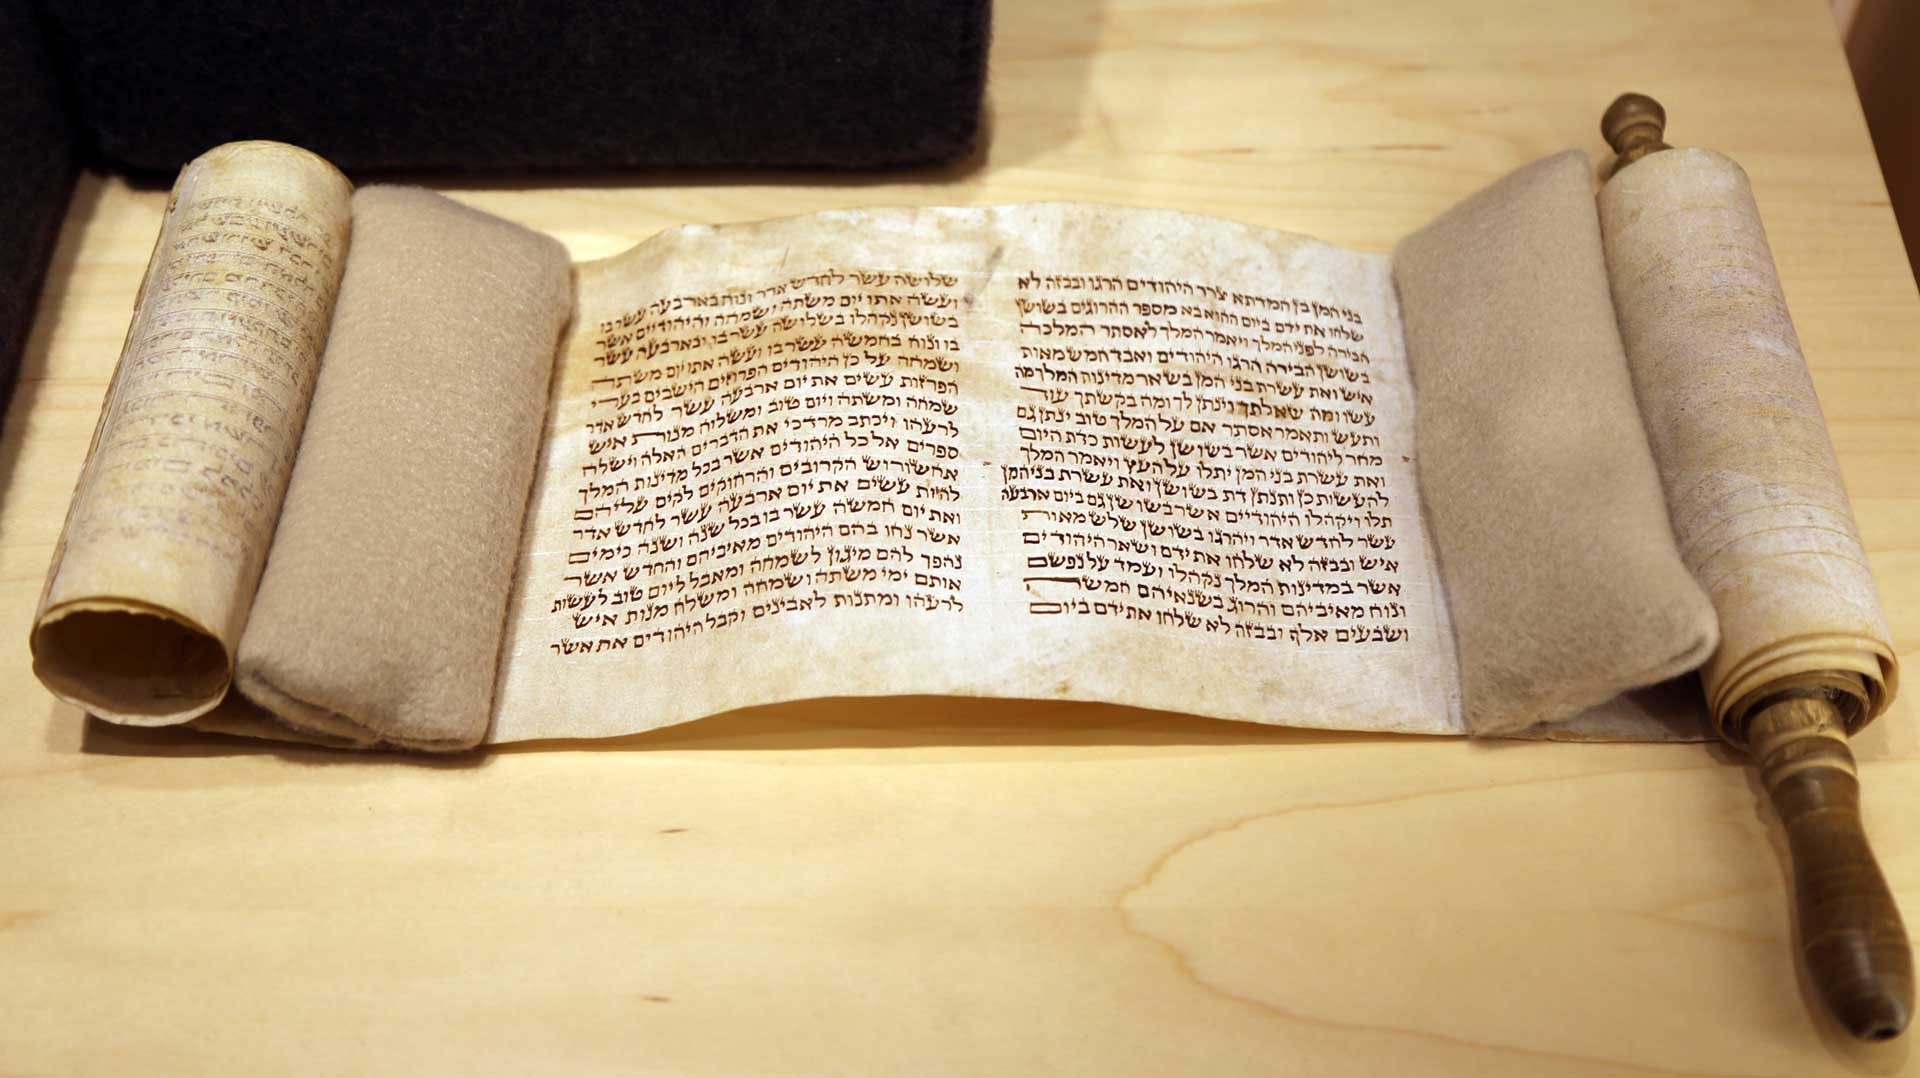 בני המן בן המדתא צרר היהודים הרגו ובבזה לא
שלחו את ידם ביום ההוא בא מספר ההרוגים בשושן
הבירה לפני המלך ויאמר המלך לאסתר המלכה
בשושן הבירה הרגו היהודים ואבד חמש מאות
איש ואת עשרת בני המן בשאר מדינות המלך מה
עשו ומה שאלתך וינתן לך ומה בקשתך עוד
ותעש ותאמר אסתר אם על המלך טוב ינתן גם
מחר ליהודים אשר בשושן לעשות כדת היום
ואת עשרת בני המן יתלו על העץ ויאמר המלך
להעשות כן ותנתן דת בשושן ואת עשרת בני המן
תלו ויקהלו היהודיים אשר בשושן גם ביום ארבעה
עשר לחדש אדר ויהרגו בשושן שלש מאות
איש ובבזה לא שלחו את ידם ושאר היהודים
אשר במדינות המלך נקהלו ועמד על נפשם
ונוח מאיביהם והרוג בשנאיהם חמשה
ושבעים אלף ובבזה לא שלחו את ידם ביום
שלושה עשר לחדש אדר ונוח בארבעה עשר בו
ועשה אתו יום משתה ושמחה והיהודיים אשר
בשושן נקהלו בשלושה עשר בו ובארבעה עשר
בו ונוח בחמשה עשר בו ועשה אתו יום משתה
ושמחה על כן היהודים הפרוזים הישבים בערי
הפרזות עשים את יום ארבעה עשר לחדש אדר
שמחה ומשתה ויום טוב ומשלוח מנות איש
לרעהו ויכתב מרדכי את הדברים האלה וישלח
ספרים אל כל היהודים אשר בכל מדינות המלך
אחשורוש הקרובים והרחוקים לקים עליהם
להיות עשים את יום ארבעה עשר לחדש אדר
ואת יום חמשה עשר בו בכל שנה ושנה כימים
אשר נחו בהם היהודים מאיביהם והחדש אשר
נהפך להם מיגון לשמחה ומאבל ליום טוב לעשות
אותם ימי משתה ושמחה ומשלח מנות איש
לרעהו ומתנות לאבינים וקבל היהודים את אשר